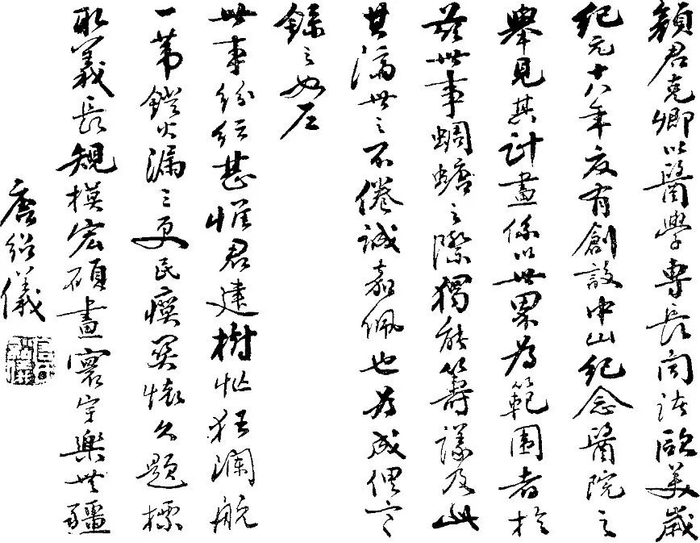 顏君克卿以醫學專長聞歐美歲
紀元十八年度有創設中山紀念醫院之
舉見其計畫係以世界為範圍者於
茲世事蜩螗之際獨能籌謀及此
其濟世之不倦誠嘉佩也為成俚言
錄之如左
世事紛紜甚惟君建樹忙狂瀾航
一葦鐙火漏三更民瘼關懷久題標
取義長規模宏碩畫寰宇樂無疆
唐紹儀